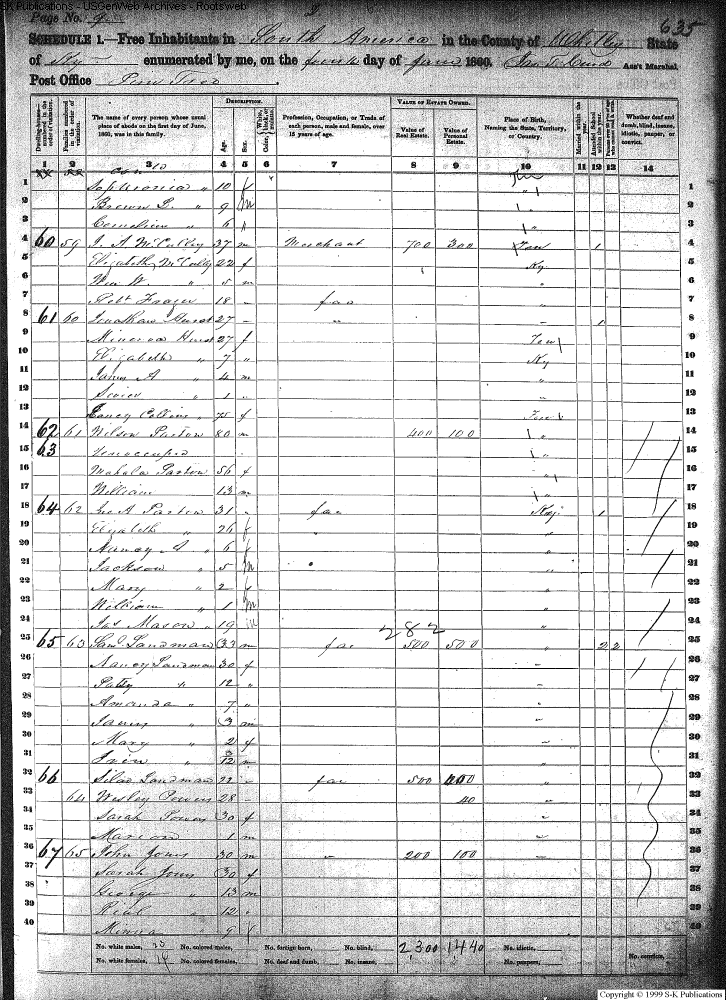 SK Publications - USGenWeb Archives - Rootsweb
Page No. 9 2 635
SCHEDULE 1.—Free Inhabitants in South America in the County of Whitley State
of Ky enumerated by me, on the day of June 1860. Ass't Marshal.
Post Office
DESCRIPTION. VALUE OF ESTATE OWNED.
Dwelling-houses— numbered in the order of visitation.
Families numbered in the order of visitation.
The name of every person whose usual place of abode on the first day of June, 1860, was in this family.
Age. Sex.
Profession, Occupation, or Trade of each person, male and female, over 15 years of age.
Value of Real Estate. Value of Personal Estate.
Place of Birth, Naming the State, Territory, or Country.
Married within the year. Attended School within the year.
Whether deaf and dumb, blind, insane, idiotic, pauper, or convict.
1 2 3 4 5 6 7 8 9 10 11 12 13 14
1 Sophronia " 10 f 1
2 Brown " 9 m 2
3 Cornelius " 6 " 3
4 60 59 J. A. McCulley 37 m Merchant 700 300 Ten 1 4
5 Elizabeth McCully 22 f Ky 5
6 Wm W. " 5 m " 6
7 Robt Frazer 18 - far " 7
8 61 60 Jonathan Hurst 27 - " - 1 8
9 Minerva Hurst 27 f Ten 9
10 Elizabeth " 7 " Ky 10
11 James A " 4 m " 11
12 " 1 " 12
13 Nancy Collins 75 f Ten 13
14 62 61 Wilson Parton 80 m 400 100 " 14
15 63 Unoccupied " 15
16 Mahala Parton 56 f " 16
17 William 13 m " 17
18 64 62 Jno A Parton 31 - far Ky 1 18
19 Elizabeth " 26 f " 19
20 Nancy A " 6 f " 20
21 Jackson " 5 m " 21
22 Mary " 2 f 22
23 William " 1 m " 23
24 Jas Mason " 19 m " 24
282
25 65 63 Sam Landman 33 m far 500 500 " 2 2 25
26 Nancy Landman 30 f - 26
27 Patsy " 12 " - 27
28 Amanda " 7 " " 28
29 James " 3 m - 29
30 Mary " 2 f - 30
31 " 3/12 m 31
32 66 Silas Landman 22 - far 500 " 32
33 64 Wesley Powers 28 - 40 " 33
34 Sarah Powers 30 f 34
35 Marion 1 m 35
36 67 65 John Jones 30 m - 200 100 - 36
37 Sarah Jones 30 f 37
38 George " 13 m 38
39 " 12 " 39
40 9 f 40
No. white males, No. colored males, No. foreign born, No. blind, 2300 1440 No. idiotic,
No. white females, No. colored females, No. deaf and dumb, No. insane, No. paupers, No. convicts,
Copyright © 1999 S-K Publications